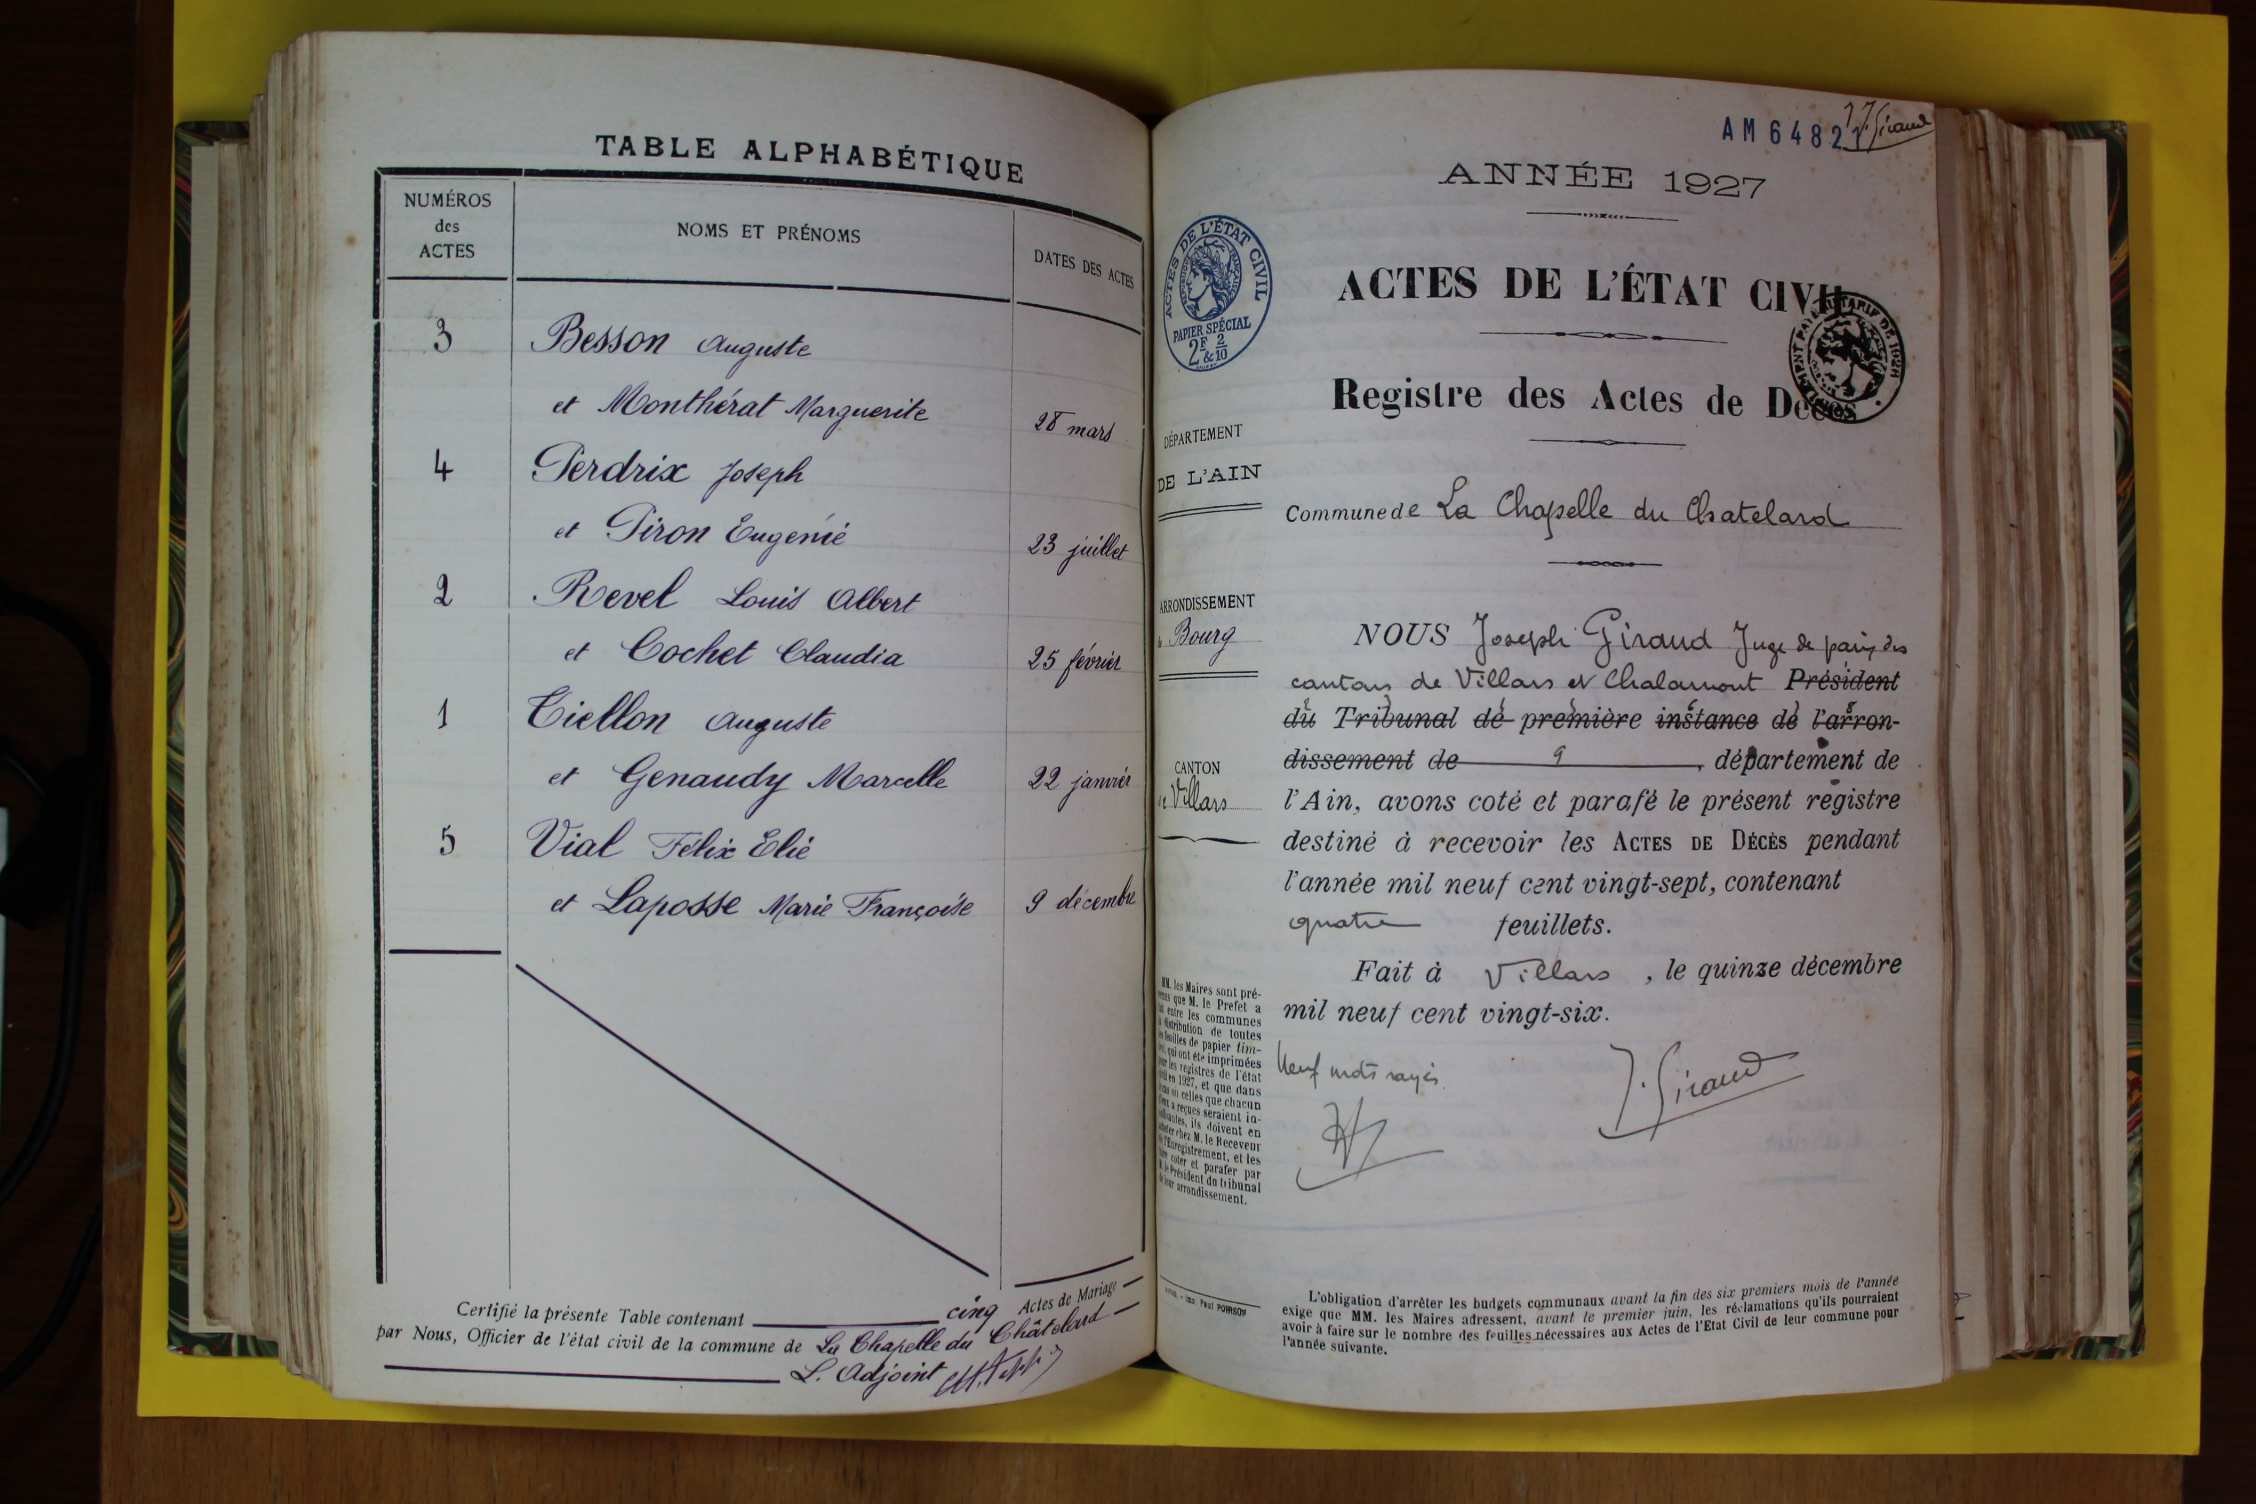 TABLE ALPHABÉTIQUE
NUMÉROS
des
ACTES
NOMS ET PRÉNOMS
DATES DES ACTES
3 Besson Auguste
et Monthérat Marguerite 28 mars
4 Perdrix Joseph
et Piron Eugénie 23 juillet
2 Revel Louis Albert
et Cochet Claudia 25 février
1 Tiellon Auguste
et Genaudy Marcelle 22 janvier
5 Vial Félix Elie
et Laposse Marie Françoise 9 décembre
Certifié la présente Table contenant cinq Actes de Mariage
par Nous, Officier de l'état civil de la commune de La Chapelle du Châtelard
L. Adjoint
AM 6482
J. Giraud
ANNÉE 1927
ACTES DE L'ÉTAT CIVIL
PAPIER SPÉCIAL
2F & 2/10
ACTES DE L'ÉTAT CIVIL
Registre des Actes de Décès
DÉPARTEMENT
DE L'AIN
Commune de La Chapelle du Chatelard
ARRONDISSEMENT
de Bourg
CANTON
de Villars
NOUS Joseph Giraud Juge de paix des
cantons de Villars et Chalamont Président
du Tribunal de première instance de l'arron-
dissement de 9, département de
l'Ain, avons coté et parafé le présent registre
destiné à recevoir les ACTES DE DÉCÈS pendant
l'année mil neuf cent vingt-sept, contenant
quatre feuillets.
Fait à Villars, le quinze décembre
mil neuf cent vingt-six.
Neuf mots rayés
J. Giraud
MM. les Maires sont pré-
venus que M. le Préfet a
fait entre les communes
la distribution de toutes
les feuilles de papier tim-
bré, qui ont été imprimées
pour les registres de l'état
civil en 1927, et que dans
le cas où celles que chacun
d'eux a reçues seraient in-
suffisantes, ils doivent en
acheter chez M. le Receveur
de l'Enregistrement, et les
faire coter et parafer par
M. le Président du tribunal
de leur arrondissement.
Imp. Paul POIRSON
L'obligation d'arrêter les budgets communaux avant la fin des six premiers mois de l'année
exige que MM. les Maires adressent, avant le premier juin, les réclamations qu'ils pourraient
avoir à faire sur le nombre des feuilles nécessaires aux Actes de l'Etat Civil de leur commune pour
l'année suivante.